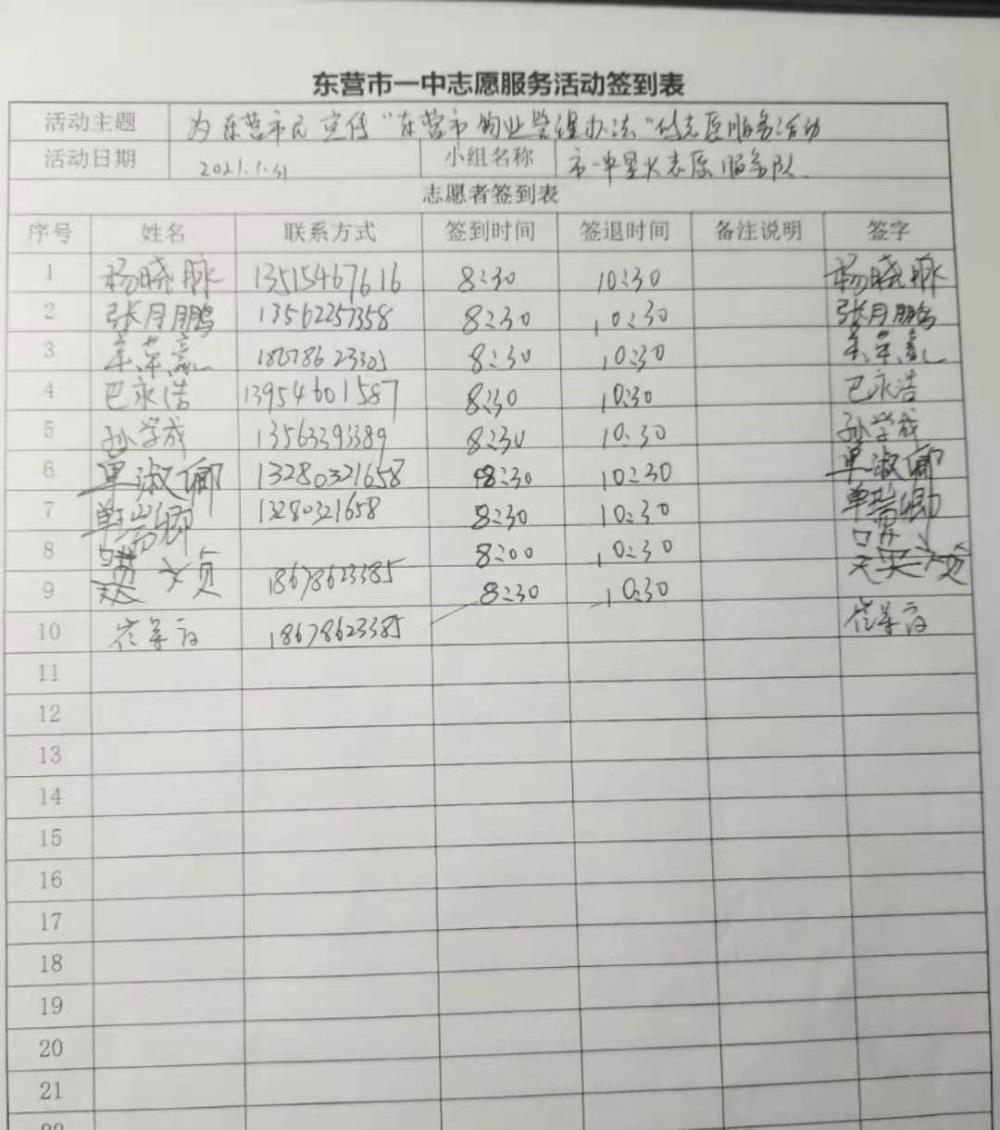 东营市一中志愿服务活动签到表
活动主题 为东营市民宣传"东营市物业管理办法"的志愿服务活动
活动日期 2021.1.31 小组名称 市一中星火志愿服务队
志愿者签到表
序号 姓名 联系方式 签到时间 签退时间 备注说明 签字
1 杨晓脉 13515467616 8:30 10:30 杨晓脉
2 张月鹏 13562257358 8:30 10:30 张月鹏
3 18678623385 8:30 10:30
4 巴永浩 13954601587 8:30 10:30 巴永浩
5 孙学成 13563393389 8:30 10:30 孙学成
6 单淑卿 13280321658 8:30 10:30 单淑卿
7 单瑞卿 13280321658 8:30 10:30 单瑞卿
8 8:00 10:30
9 18678623385 8:30 10:30
10 崔 18678623385 崔
11
12
13
14
15
16
17
18
19
20
21